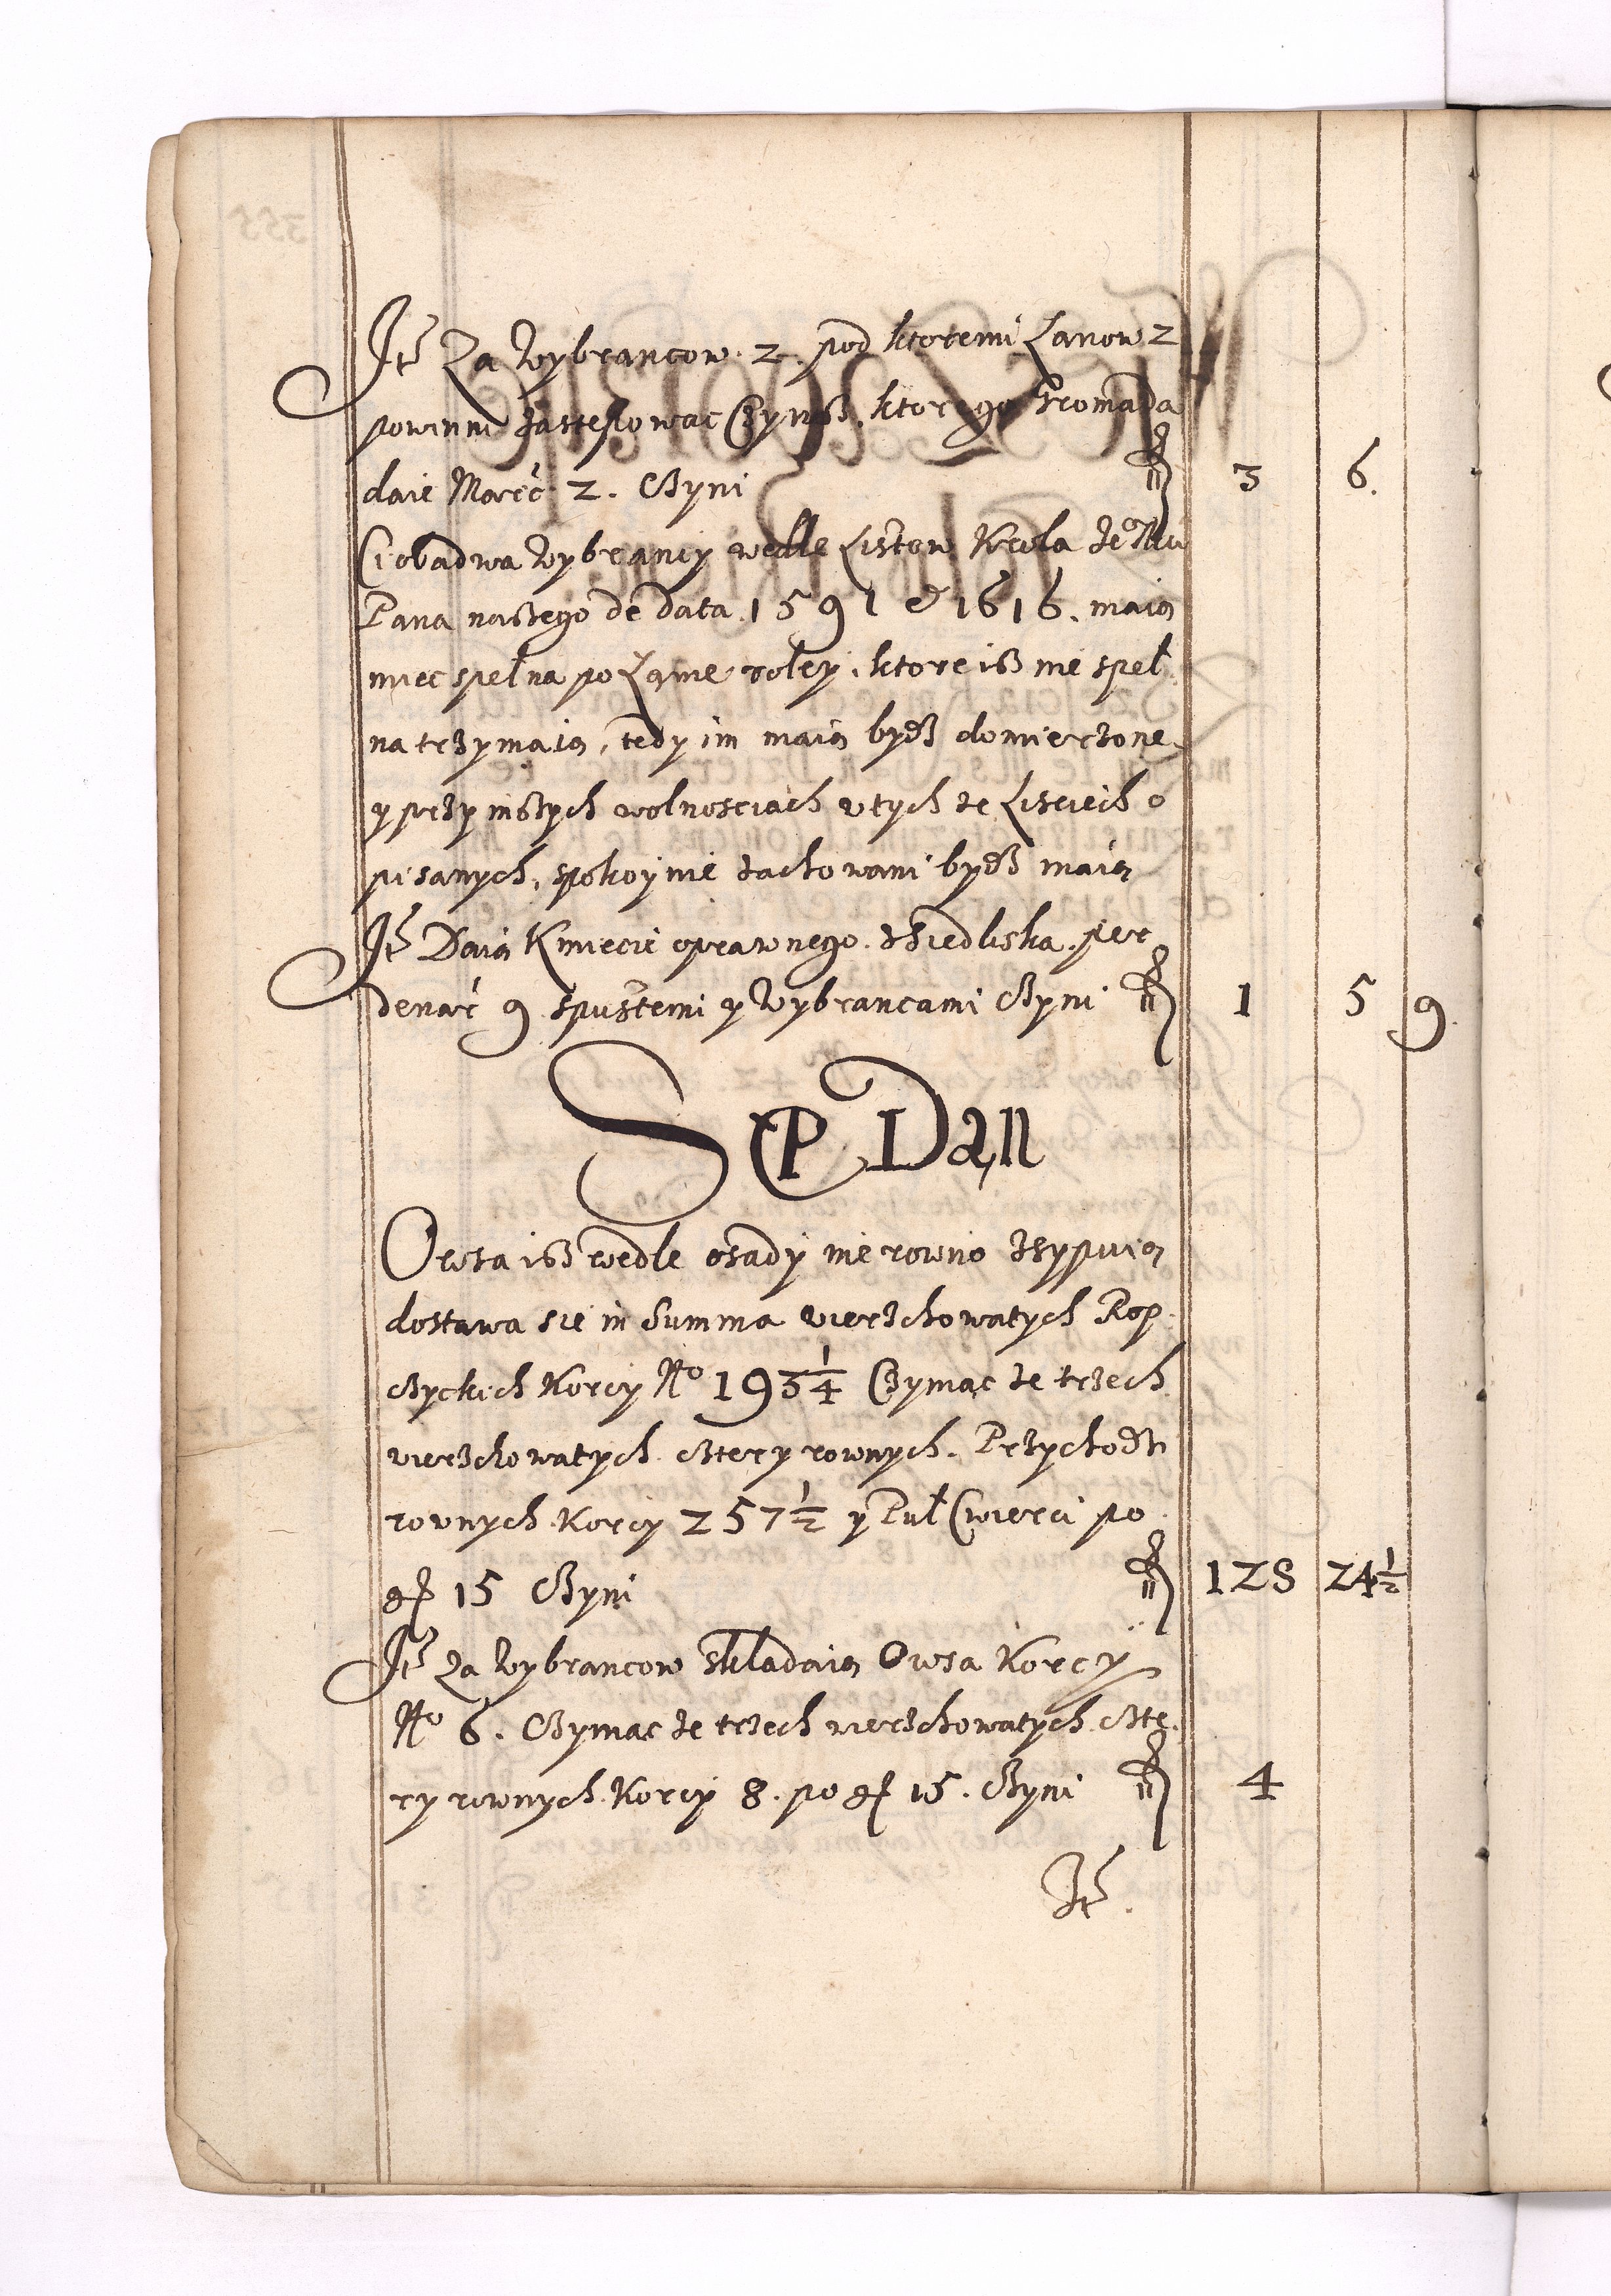 Itē Za Wybrancow. 2. pod ktoremi Łanow 2
powinni zastępowac Czynß, ktorego Gromada
daie Març 2. Czyni fl 3 6.
Ci obadwa Wybrancy wedle Listow Krola Je° Mci
Pana naszego de data. 1591 et 1616. maią
miec spełna po Łanie roley, ktore iß nie speł
na trzymaią, tedy im maią bydź domierzone
y przy inszych wolnosciach w tych ze Lisciech o
pisanych, spokoynie zachowani bydź maią
Itē Daią Kmiecie oprawnego z Siedliska per
denar 9 spustemi y Wybrancami Czyni fl 1 5 9.
SEP Dan
Owsa iß wedle osady nie rowno zsypuią
dostawa się in Summa wierzchowatych Rop
czyckich Korcy No 193 1/4 Czyniac ze trzech
wierzchowatych cztery rownych. Przychodzi
rownych Korcy 257 1/2 y Puł Cwierci po
gr 15 Czyni fl 128 24 1/2
Itē Za Wybrancow składaią Owsa Korcy
No 6. Czyniac ze trzech wierzchowatych czte
ry rownych Korcy 8. po gr 15. Czyni fl 4
Itē.